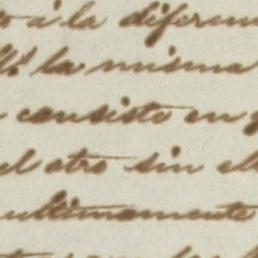 á la diferen
la misma
consiste en
el otro sin el
ultimamente